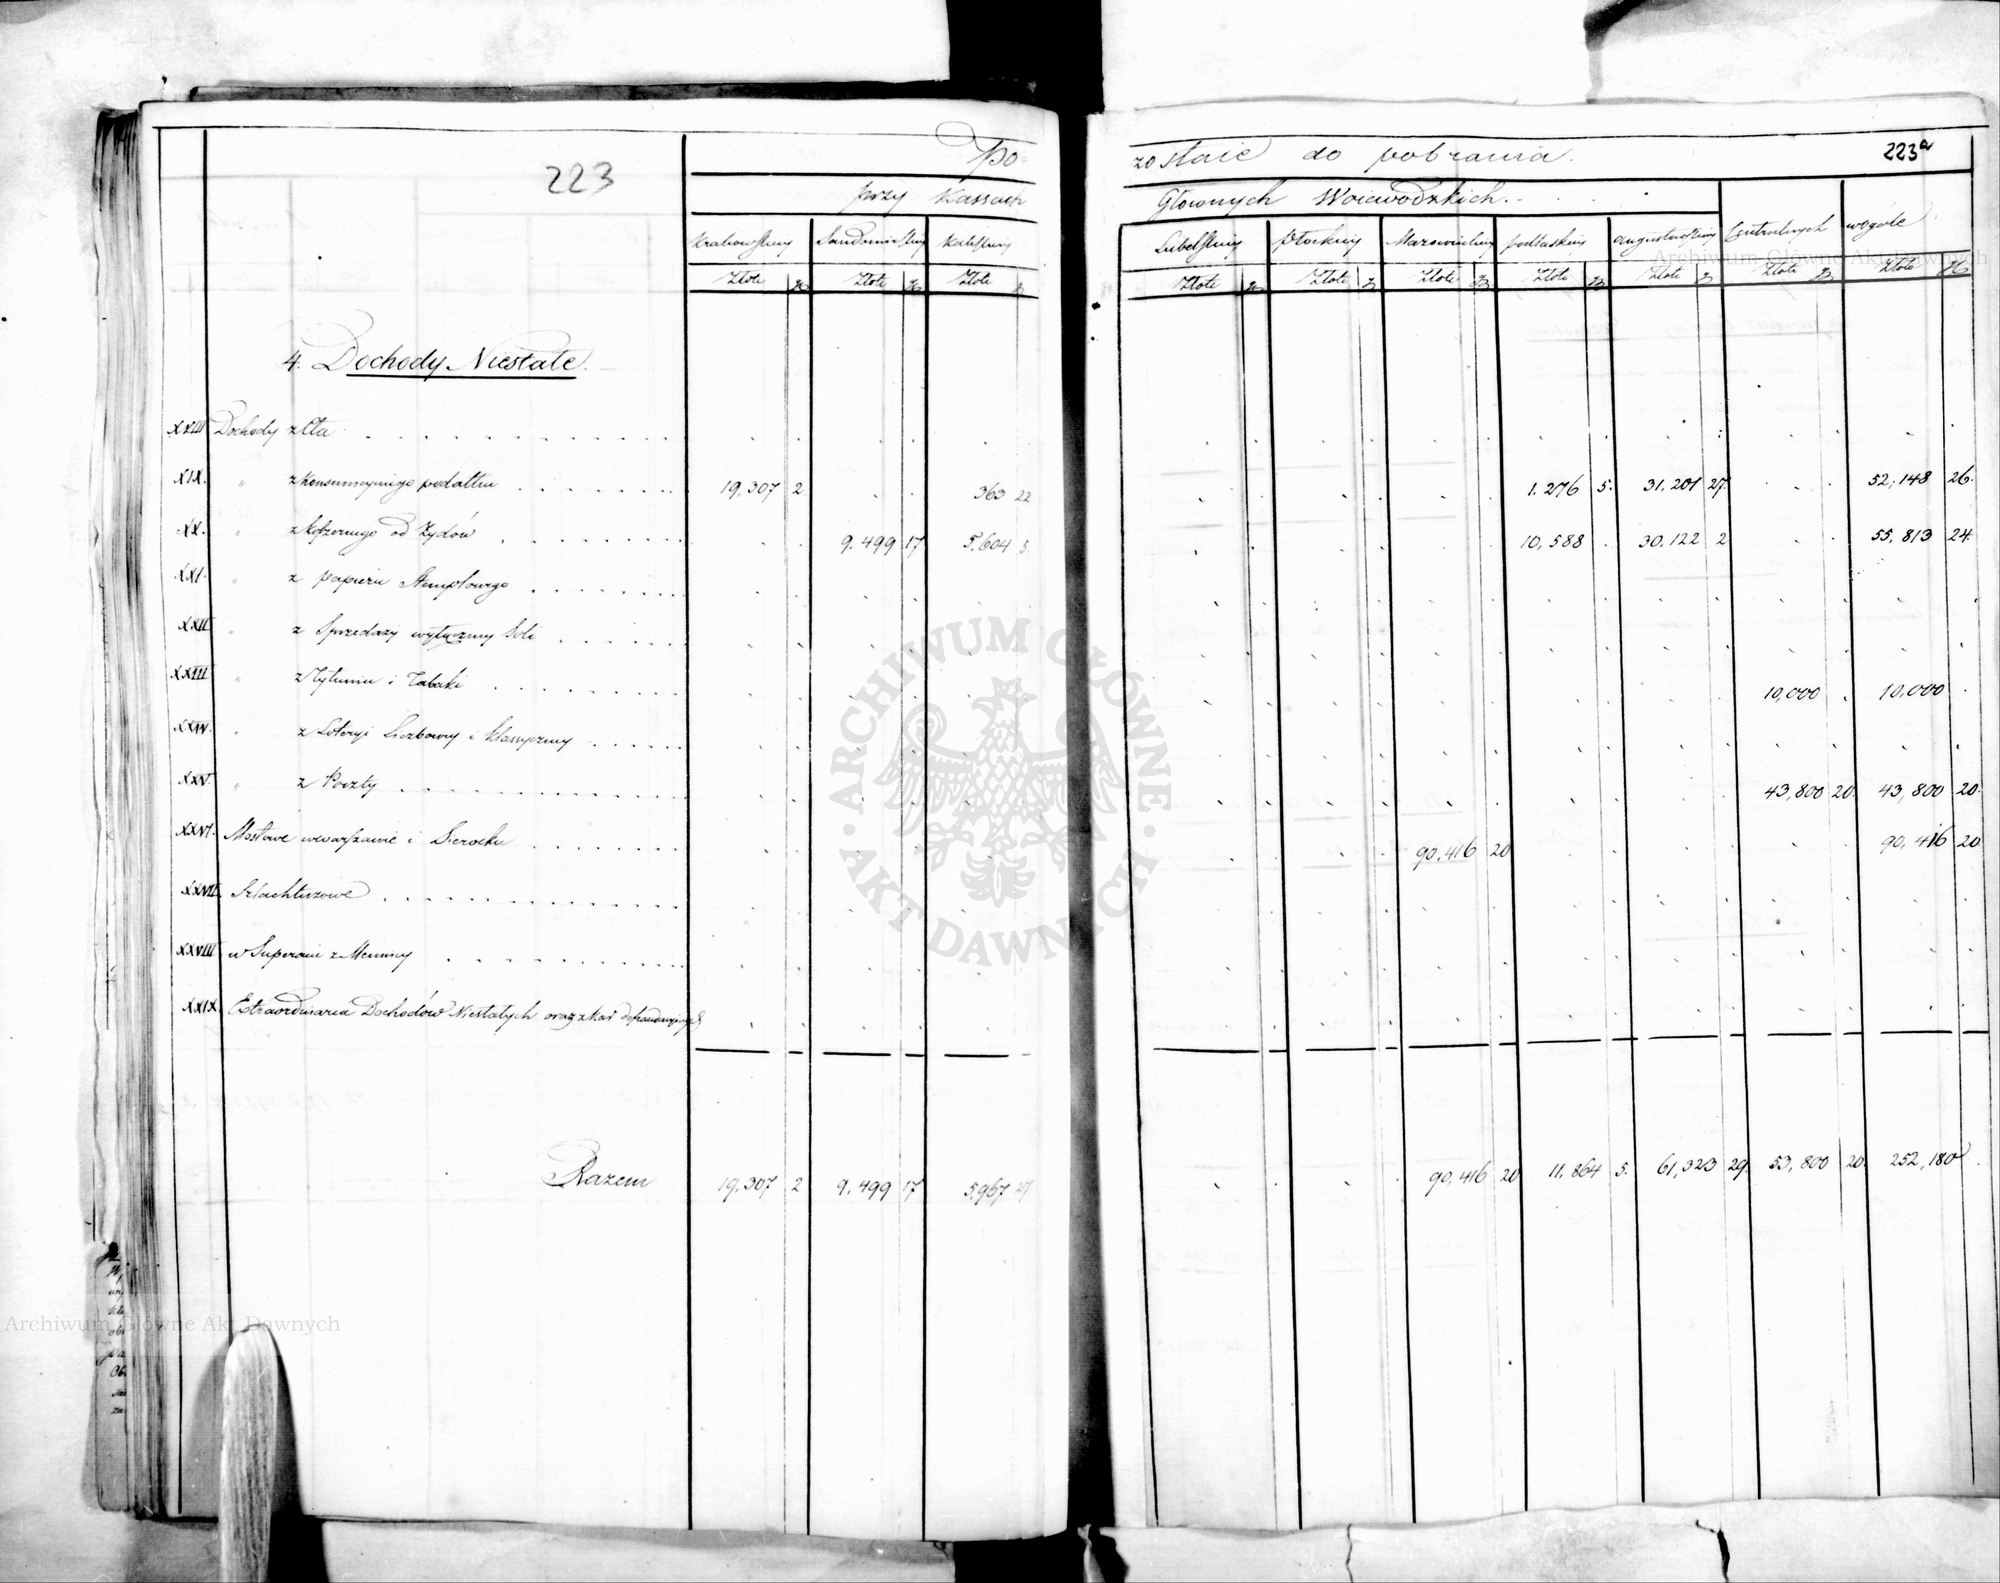 223
Po
zostaie do pobrania.
223a
przy Kassach
Głownych Woiewodzkich.
Krakowskiey
Sandomirskiey
Kaliskiey
Lubelskiey
Płockiey
Mazowieckiey
podlaskiey
augustowskiey
Centralnych
wogóle
Złote
Złote
Złote
Złote
Złote
Złote
Złote
Złote
Złote
Złote
4. Dochody Niestałe.
XVIII Dochody z Cła
XIX. " z Konsumcyinego podatku 19,307 2 363 22 1.276 5. 31,201 27. 52,148 26.
XX. " z koszernego od Żydów 9.499 17 5,604 5. 10,588 30,122 2 55,813 24.
XXI. " z papieru Stemplowego
XXII " z Sprzedaży wyłączney Soli
XXIII " z Tytuniu i Tabaki 10,000 10,000
XXIV. " z Loteryi Liczbowey i Klassyczney
XXV " z Poczty 43,800 20. 43,800 20.
XXVI. Mostowe w warszawie i Sierocku 90,416 20 90,416 20
XXVII. Szlachtuzowe
XXVIII w Superacie z Mennicy
XXIX. Extraordinaria Dochodów Niestałych oraz z kar defraudacyinych
Razem 19,307 2 9.499 17 5,967 27 90,416 20 11,864 5. 61,323 29. 53,800 20. 252,180
ARCHIWUM GŁÓWNE AKT DAWNYCH
Archiwum Główne Akt Dawnych
Archiwum Główne Akt Dawnych